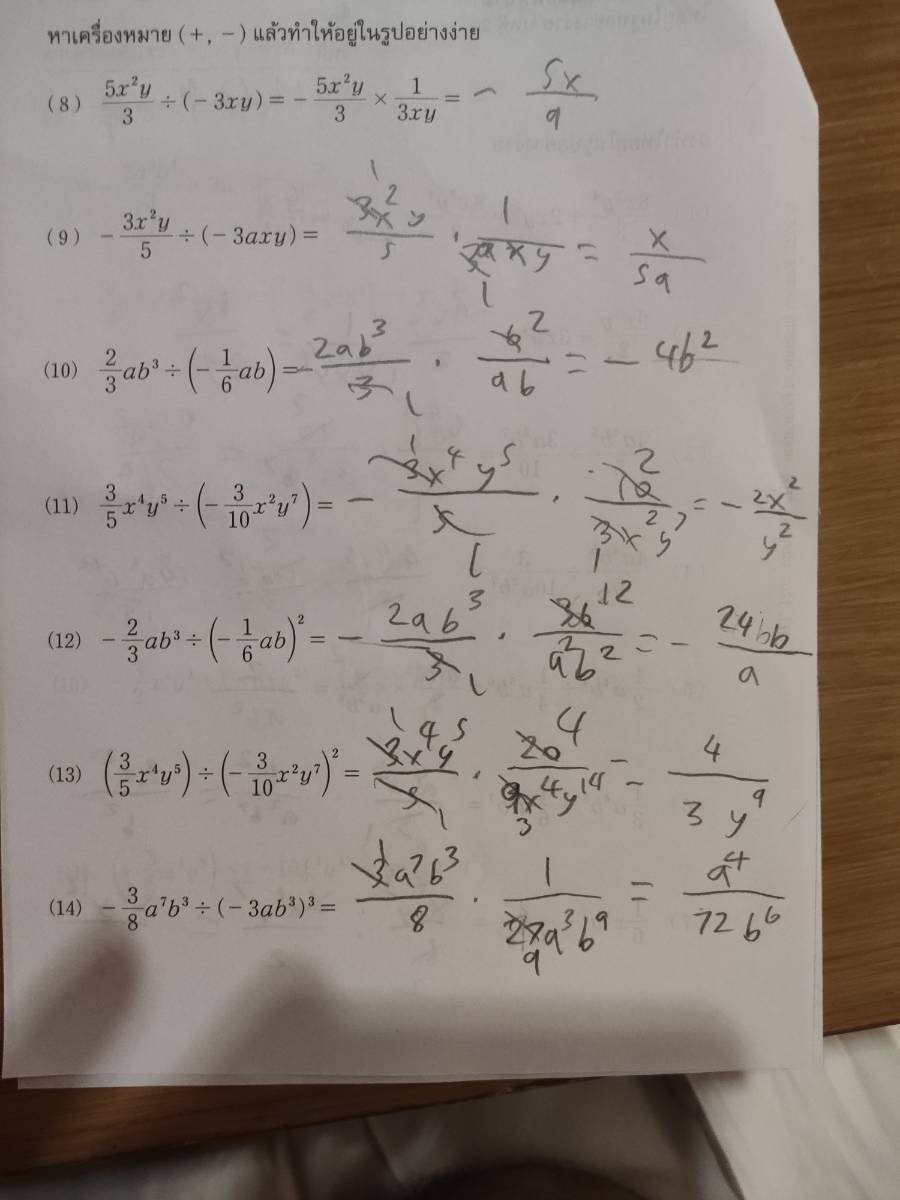 หาเครื่องหมาย (+, −) แล้วทำให้อยู่ในรูปอย่างง่าย
(8) 5x²y/3 ÷ (−3xy) = − 5x²y/3 × 1/3xy = − 5x/9
(9) − 3x²y/5 ÷ (−3axy) = 3x²y/5 · 1/3axy = x/5a
(10) 2/3 ab³ ÷ (− 1/6 ab) = − 2ab³/3 · 6/ab = − 4b²
(11) 3/5 x⁴y⁵ ÷ (− 3/10 x²y⁷) = − 3x⁴y⁵/5 · 10/3x²y⁷ = − 2x²/y²
(12) − 2/3 ab³ ÷ (− 1/6 ab)² = − 2ab³/3 · 36/a²b² = − 24b/a
(13) (3/5 x⁴y⁵) ÷ (− 3/10 x²y⁷)² = 3x⁴y⁵/5 · 20/9x⁴y¹⁴ = 4/3y⁹
(14) − 3/8 a⁷b³ ÷ (−3ab³)³ = 3a⁷b³/8 · 1/27a³b⁹ = a⁴/72b⁶